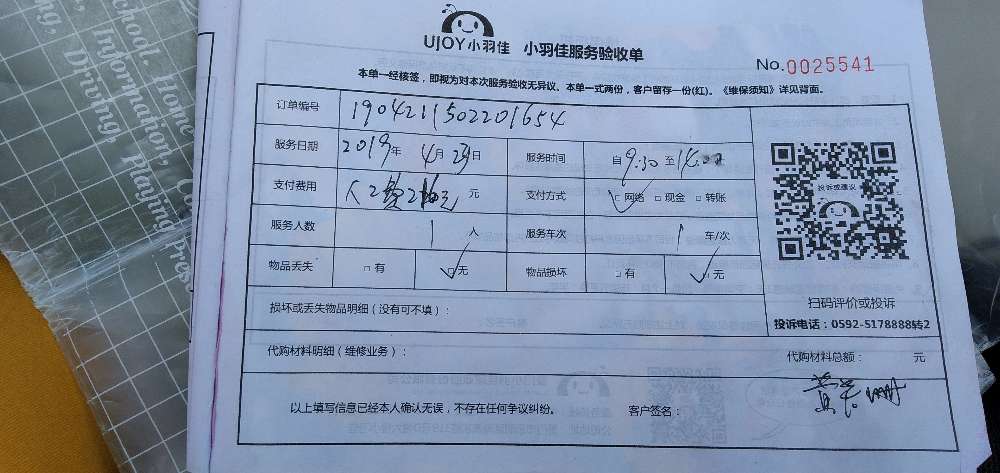 UJOY小羽佳 小羽佳服务验收单
No.0025541
本单一经核签，即视为对本次服务验收无异议。本单一式两份，客户留存一份(红)。《维保须知》详见背面。
订单编号 1904211502201654
服务日期 2019年 4月 23日 服务时间 自9:30 至14:00
支付费用 元 支付方式 □网络 □现金 □转账
服务人数 1 人 服务车次 1 车/次
物品丢失 □有 □无 物品损坏 □有 □无
投诉或建议
扫码评价或投诉
投诉电话：0592-5178888转2
损坏或丢失物品明细（没有可不填）：
代购材料明细（维修业务）： 代购材料总额： 元
以上填写信息已经本人确认无误，不存在任何争议纠纷。 客户签名：
School, Home
Information,
Driving, Playing